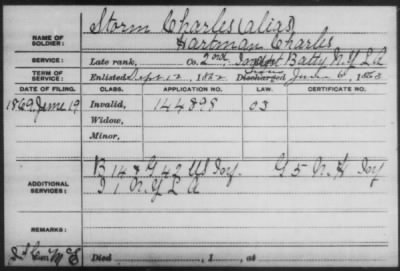 NAME OF SOLDIER: Storm Charles (alias)
Hartman Charles
SERVICE: Late rank, Co. 2nd Indpt Batty, N.Y. L A
TERM OF SERVICE: Enlisted Sept. 12, 1862 Discharged June 6, 1863
DATE OF FILING. CLASS. APPLICATION NO. LAW. CERTIFICATE NO.
1869 June 19 Invalid, 144898 03
Widow,
Minor,
ADDITIONAL SERVICES: B 14 & G 42 US Inf. G 5 N. H Inf
I 1 N.Y L A
REMARKS:
Died , 1 , at